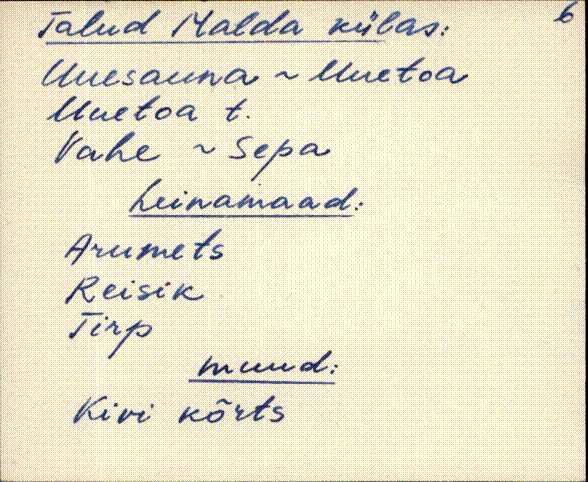 6
Talud Malda külas:
Uuesauna ~ Uuetoa
Uuetoa t.
Vahe ~ Sepa
heinamaad:
Arumets
Reisik
Tirp
muud:
Kivi kõrts